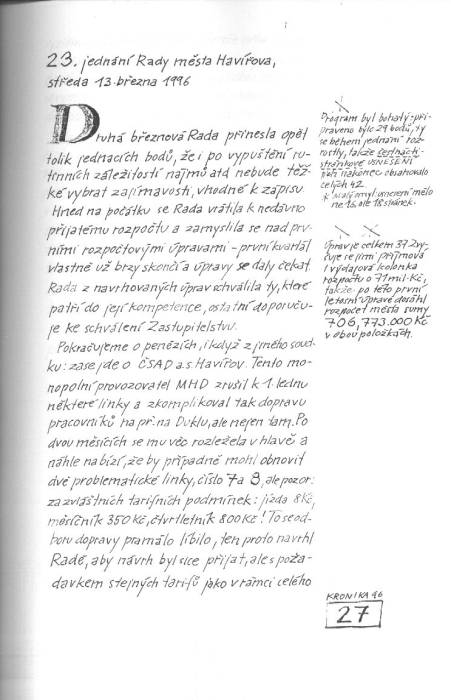 23. jednání Rady města Havířova,
středa 13. března 1996
Druhá březnová Rada přinesla opět
tolik jednacích bodů, že i po vypuštění ru-
tinních záležitostí najmů atd nebude těž-
ké vybrat zajímavosti, vhodné k zápisu.
Hned na počátku se Rada vrátila k nedávno
přijatému rozpočtu a zamyslila se nad prv-
ními rozpočtovými úpravami - první kvartál
vlastně už brzy skončí a úpravy se daly čekat.
Rada z navrhovaných úprav schválila ty, které
patří do její kompetence, ostatní doporuču-
je ke schválení Zastupitelstvu.
Pokračujeme o penězích, i když z jiného soud-
ku: zase jde o ČSAD a.s. Havířov. Tento mo-
nopolní provozovatel MHD zrušil k 1. lednu
některé linky a zkomplikoval tak dopravu
pracovníků na př. na Duklu, ale nejen tam. Po
dvou měsících se mu věc rozležela v hlavě a
náhle nabízí, že by případně mohl obnovit
dvě problematické linky, číslo 7 a 9, ale pozor:
za zvláštních tarifních podmínek: jízda 8 Kč,
měsíčník 350 Kč, čtvrtletník 800 Kč! To se od-
boru dopravy pramálo líbilo, ten proto navrhl
Radě, aby návrh byl sice přijat, ale s poža-
davkem stejných tarifů jako v rámci celého
Program byl bohatý - při-
praveno bylo 29 bodů, ty
se během jednání roz-
rostly, takže šestnáct-
stránkové USNESENÍ
jich nakonec obsahovalo
celých 42.
mělo
ne 16, ale 18 stránek.
Úprav je celkem 37. Zvy-
šuje se jimi příjmová
i výdajová kolonka
rozpočtu o 71 mil. Kč,
takže po této první
letošní úpravě dosáhl
rozpočet města sumy
706,773.000 Kč
v obou položkách.
KRONIKA 96
27